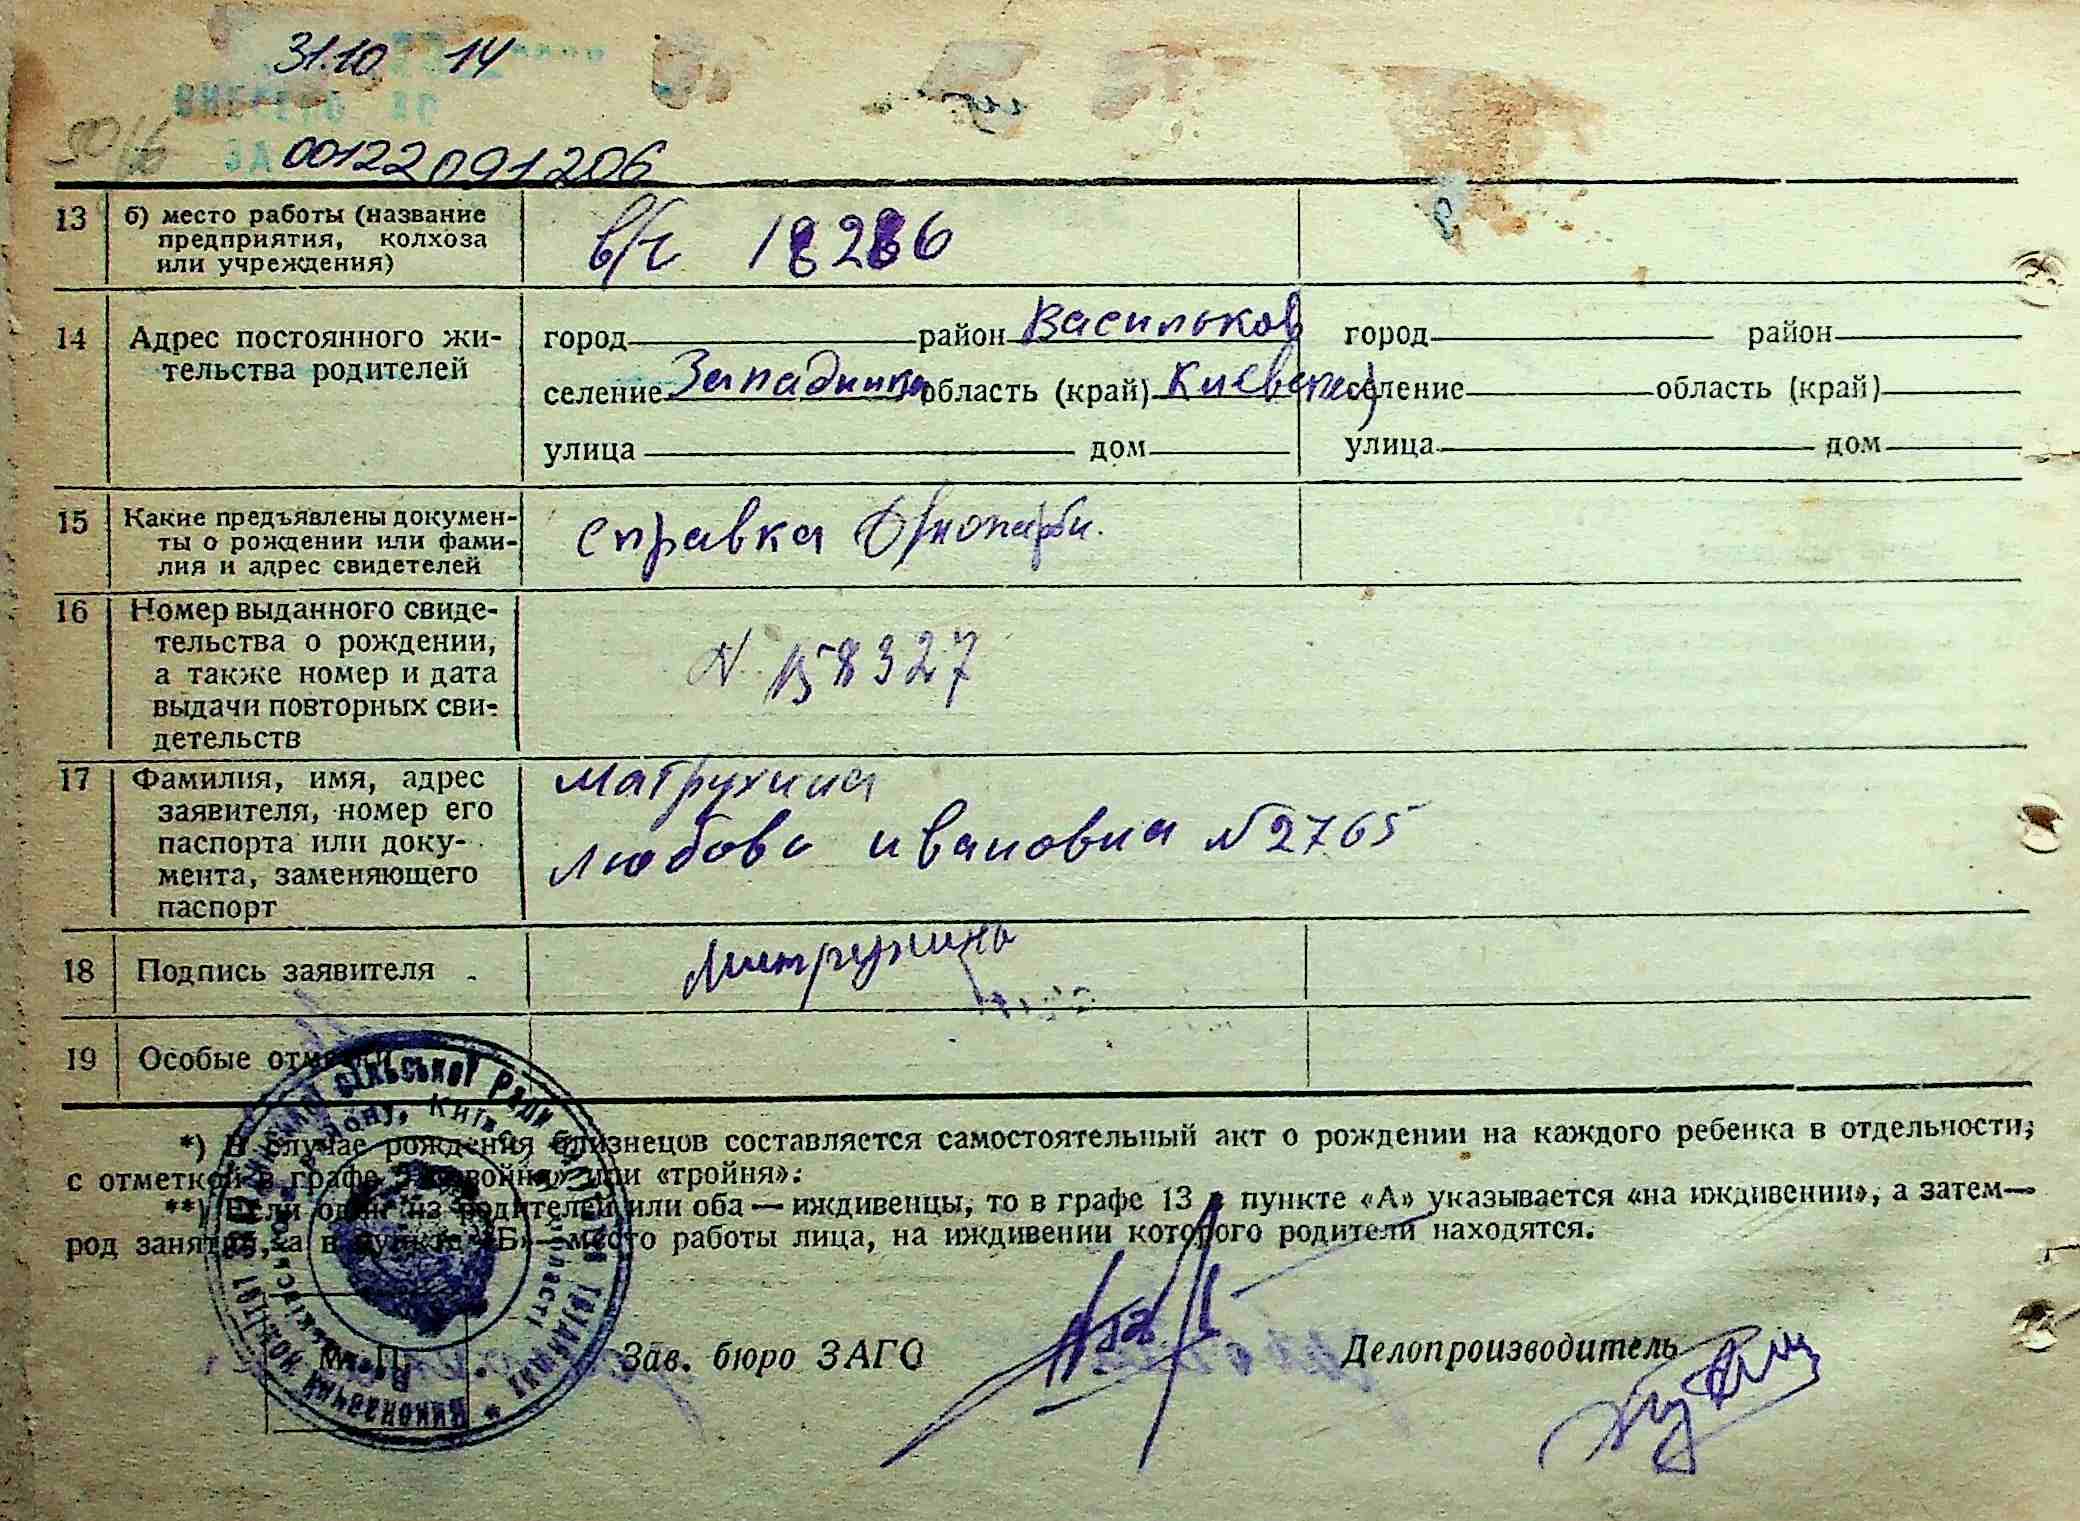 31.10 14
00122091206
13 б) место работы (название
предприятия, колхоза
или учреждения)
в/ч 18286
14 Адрес постоянного жи-
тельства родителей
город район Васильков город район
селение Западинка область (край) Киевской селение область (край)
улица дом улица дом
15 Какие предъявлены докумен-
ты о рождении или фами-
лия и адрес свидетелей
справка
16 Номер выданного свиде-
тельства о рождении,
а также номер и дата
выдачи повторных сви-
детельств
N 158327
17 Фамилия, имя, адрес
заявителя, номер его
паспорта или доку-
мента, заменяющего
паспорт
Матрухина
Любовь Ивановна N 2765
18 Подпись заявителя
19 Особые отметки
*) В случае рождения близнецов составляется самостоятельный акт о рождении на каждого ребенка в отдельности,
с отметкой в графе «двойня» или «тройня».
**) Если один из родителей или оба — иждивенцы, то в графе 13 в пункте «А» указывается «на иждивении», а затем—
род занятия, а в пункте «Б»—место работы лица, на иждивении которого родители находятся.
сільської Ради
району, Київ
Зав. бюро ЗАГС Делопроизводитель
М. П.